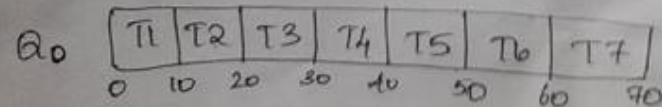 Q0 T1 T2 T3 T4 T5 T6 T7
0 10 20 30 40 50 60 70